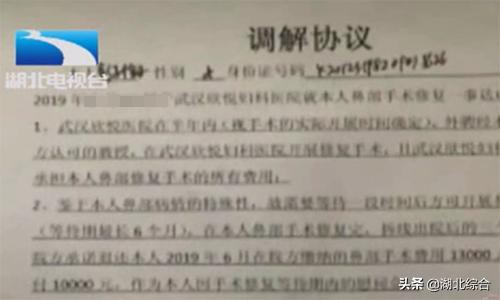 湖北电视台
调解协议
性别 身份证号码
2019年 武汉欣悦妇科医院就本人鼻部手术修复一事达
1、武汉欣悦医院在半年内(视手术的实际开展时间确定),外聘经
方认可的教授,在武汉欣悦妇科医院开展修复手术,且武汉欣悦妇科
承担本人鼻部修复手术的所有费用。
2、鉴于本人鼻部病情的特殊性,故需要等待一段时间后方可开展
(等待期最长6个月),在本人鼻部手术修复完,拆线出院后的一
院方承诺退还本人2019年6月在院方缴纳的鼻部手术费用13000
付10000元,作为本人因手术修复等待期内的
头条@湖北综合